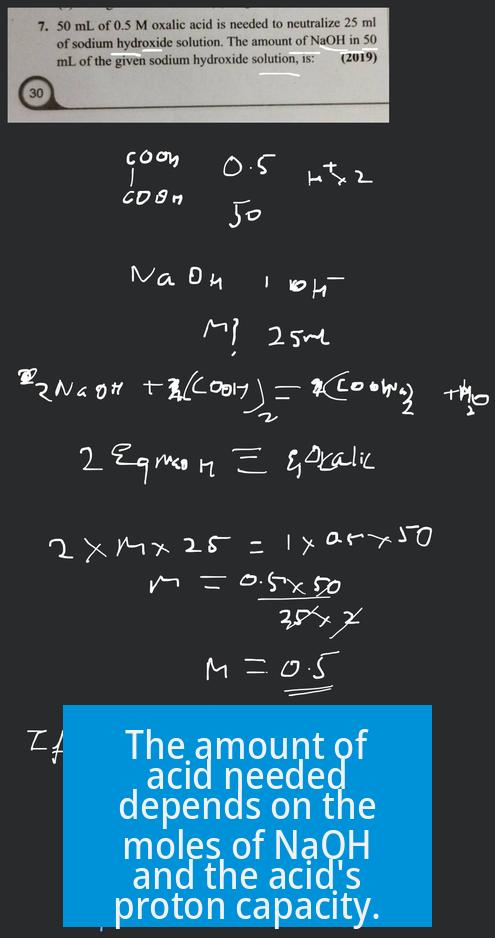 7. 50 mL of 0.5 M oxalic acid is needed to neutralize 25 ml
of sodium hydroxide solution. The amount of NaOH in 50
mL of the given sodium hydroxide solution, is: (2019)
30
COOH 0.5 H+ x 2
COOH
50
NaOH 1 OH-
M? 25ml
2NaOH + (COOH)2 = (COONa)2 + H2O
2 Eq NaOH ≡ Oxalic
2 x M x 25 = 1 x 0.5 x 50
M = 0.5 x 50
25 x 2
M = 0.5
If
The amount of
acid needed
depends on the
moles of NaOH
and the acid's
proton capacity.